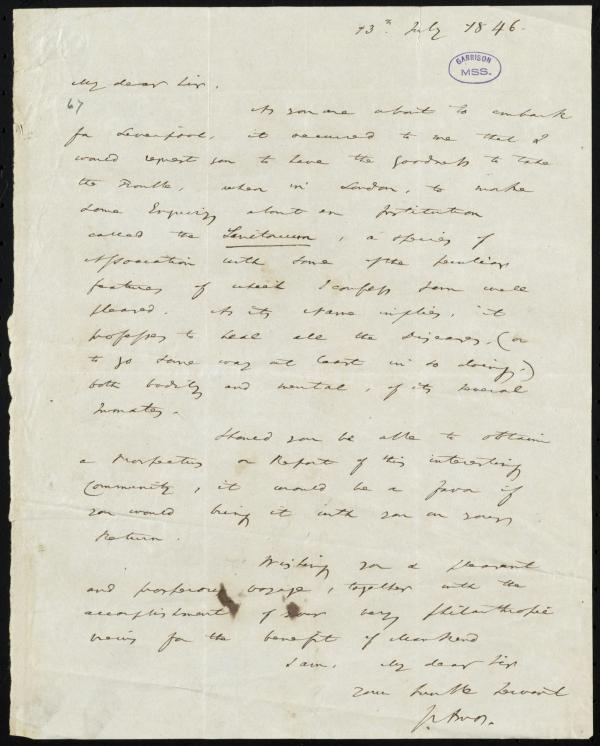 13th July 1846.
GARRISON
MSS.
My dear Sir,
67
As you are about to embark
for Liverpool, it occurred to me that I
would request you to have the goodness to take
the trouble, when in London, to make
some Enquiry about an Institution
called the Sanitorium, a species of
Association with some of the peculiar
features of which I confess I am well
pleased. As its Name implies, it
professes to heal all the diseases, (or
to go some way at least in so doing,)
both bodily and mental, of its several
Inmates.
Should you be able to obtain
a Prospectus or Report of this interesting
Community, it would be a favor if
you would bring it with you on your
Return.
Wishing you a pleasant
and prosperous voyage, together with the
accomplishment of your very philanthropic
views for the benefit of Mankind
I am, My dear Sir
your humble Servant